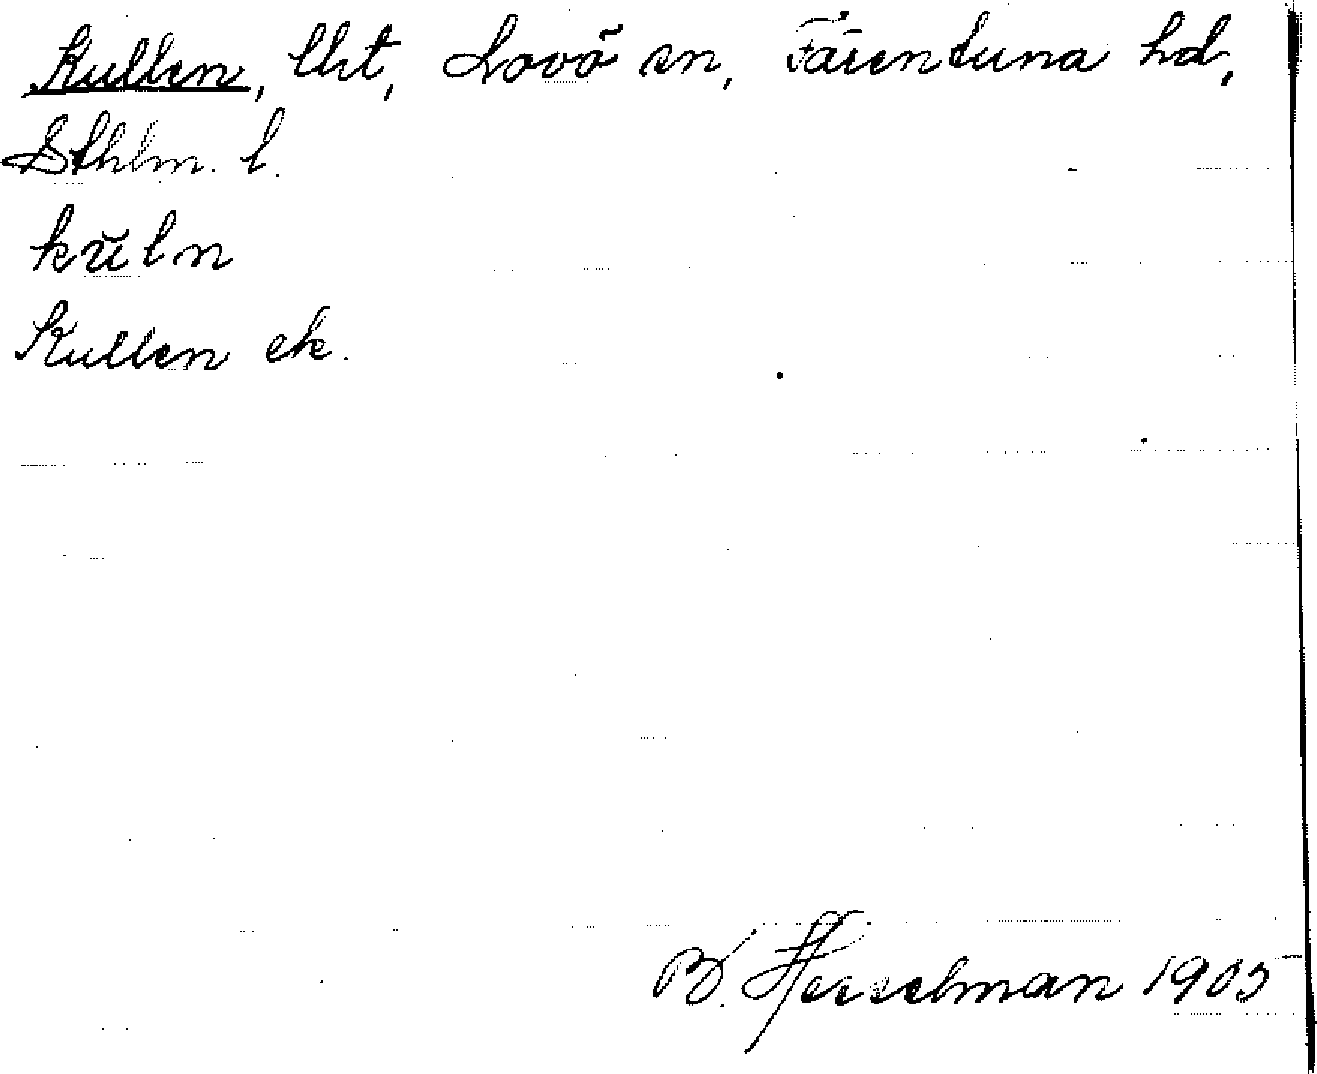 Kullen, lht, Lovö sn, Färentuna hd,
Sthlm. l.
kŭln
Kullen ek.
B. Hesselman 1905